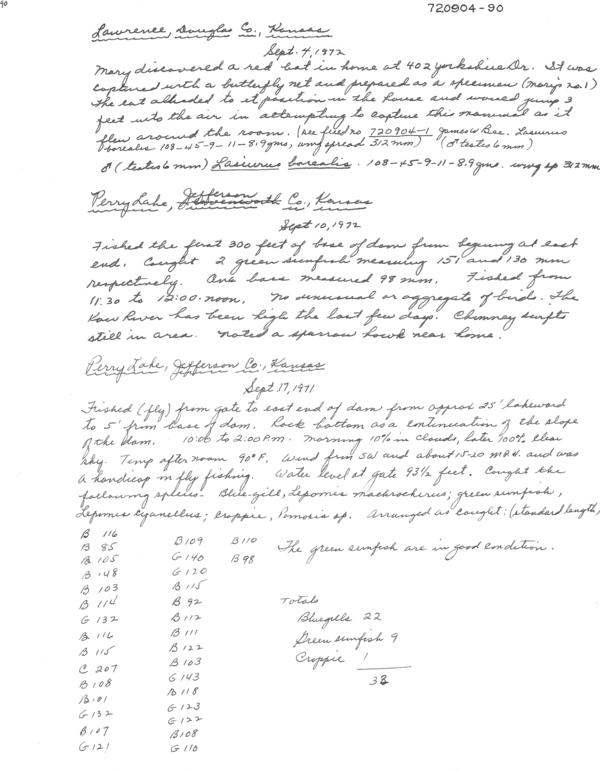 90
720904-90
Lawrence, Douglas Co., Kansas
Sept. 4, 1972
Mary discovered a red bat in home at 402 Yorkshire Dr. It was
captured with a butterfly net and prepared as a specimen (Mary's no. 1)
The cat alluded to it position in the house and would jump 3
feet into the air in attempting to capture this mammal as it
flew around the room. (see field no. 720904-1 James W Bee. Lasiurus
borealis 108-45-9-11-8.9 gms, wing spread 312 mm) (♂ testes 6 mm)
♂ (testes 6 mm) Lasiurus borealis. 108-45-9-11-8.9 gms. wing sp 312 mm
Jefferson
Perry Lake, Leavenworth Co., Kansas
Sept 10, 1972
Fished the first 300 feet of base of dam from begining at east
end. Caught 2 green sunfish measuring 151 and 130 mm
respectively. One bass measured 98 mm. Fished from
11:30 to 12:00 noon. No unusual or aggregate of birds. The
Kaw River has been high the last few days. Chimney swifts
still in area. Noted a sparrow hawk near home.
Perry Lake, Jefferson Co., Kansas
Sept 17, 1971
Fished (fly) from gate to east end of dam from approx 25' lakeward
to 5' from base of dam. Rock bottom as a continuation of the slope
of the dam. 10:00 to 2:00 P.m. Morning 10% in clouds, later 100% clear
sky. Temp after noon 90° F. Wind from SW and about 15-20 M.P.H. and was
a handicap in fly fishing. Water level at gate 93 1/2 feet. Caught the
following species. Blue-gill, Lepomis machrocherus; green sunfish,
Lepomis cyanellus; croppie, Pomoxis sp. Arranged as caught: (standard length)
B 116
B 85 B 109 B 110
B 105 G 140 B 98 The green sunfish are in good condition.
B 148 G 120
B 103 B 115
B 114 B 92 Totals
G 132 B 112 Bluegills 22
B 116 B 111
B 115 B 122 Green sunfish 9
C 207 B 103 Croppie 1
B 108 G 143 32
B 101 B 118
G 132 G 123
B 107 G 122
G 121 B 108
G 110